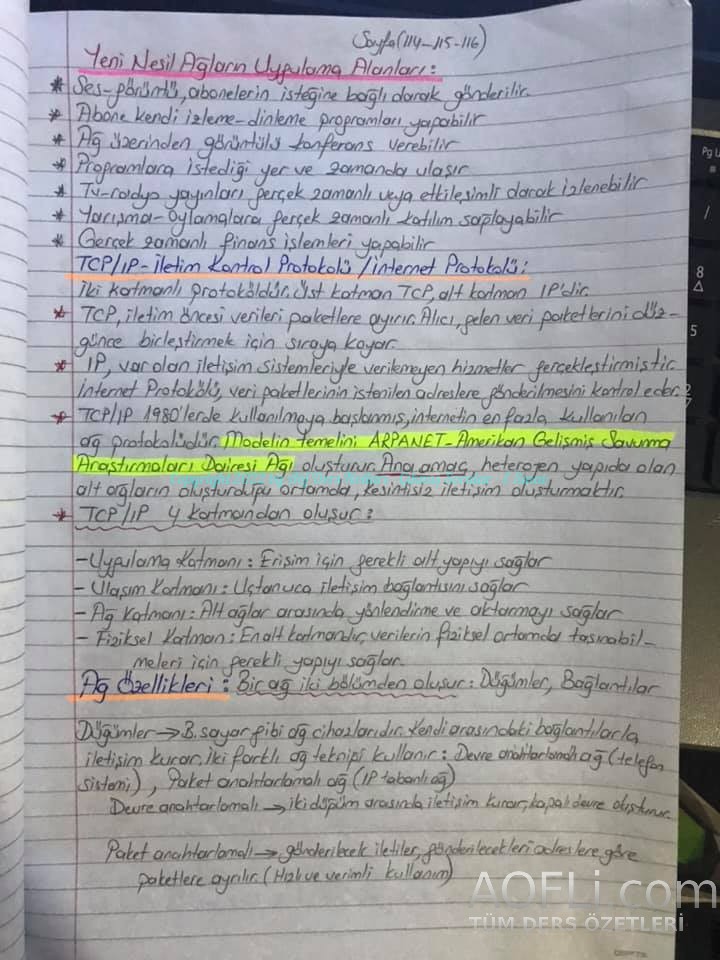 Sayfa (114-115-116)
Yeni Nesil Ağların Uygulama Alanları:
* Ses-görüntü, abonelerin isteğine bağlı olarak gönderilir.
* Abone kendi izleme-dinleme programları yapabilir
* Ağ üzerinden görüntülü konferans verebilir
* Programlara istediği yer ve zamanda ulaşır
* Tv-radyo yayınları gerçek zamanlı veya etkileşimli olarak izlenebilir
* Yarışma-oylamalara gerçek zamanlı katılım sağlayabilir
* Gerçek zamanlı finans işlemleri yapabilir
TCP/IP-İletim Kontrol Protokolü/internet Protokolü:
iki katmanlı protokoldür. Üst katman TCP, alt katman IP'dir.
* TCP, iletim öncesi verileri paketlere ayırır. Alıcı, gelen veri paketlerini düz-
günce birleştirmek için sıraya koyar.
* IP, var olan iletişim sistemleriyle verilemeyen hizmetler gerçekleştirmiştir.
internet Protokolü, veri paketlerinin istenilen adreslere gönderilmesini kontrol eder.
* TCP/IP 1980'lerde kullanılmaya başlanmış, internetin en fazla kullanılan
ağ protokolüdür. Modelin temelini ARPANET-Amerikan Gelişmiş Savunma
Araştırmaları Dairesi Ağı oluşturur. Ana amaç, heterojen yapıda olan
alt ağların oluşturduğu ortamda, kesintisiz iletişim oluşturmaktır.
* TCP/IP 4 katmandan oluşur:
-Uygulama Katmanı: Erişim için gerekli alt yapıyı sağlar
- Ulaşım Katmanı: Uçtan uca iletişim bağlantısını sağlar
- Ağ Katmanı: Alt ağlar arasında yönlendirme ve aktarmayı sağlar
- Fiziksel Katman: En alt katmandır, verilerin fiziksel ortamda taşınabil-
meleri için gerekli yapıyı sağlar.
Ağ Özellikleri: Bir ağ iki bölümden oluşur: Düğümler, Bağlantılar
Düğümler → B.sayar gibi ağ cihazlarıdır. Kendi arasındaki bağlantılarla
iletişim kurar. iki farklı ağ tekniği kullanır: Devre anahtarlamalı ağ (telefon
sistemi), Paket anahtarlamalı ağ (IP tabanlı ağ)
Devre anahtarlamalı → iki düğüm arasında iletişim kurar, kapalı devre oluşturur.
Paket anahtarlamalı → gönderilecek iletiler, gönderilecekleri adreslere göre
paketlere ayrılır. (Hızlı ve verimli kullanım)
AOFLi.com
TÜM DERS ÖZETLERİ
Pg U
/
8
5